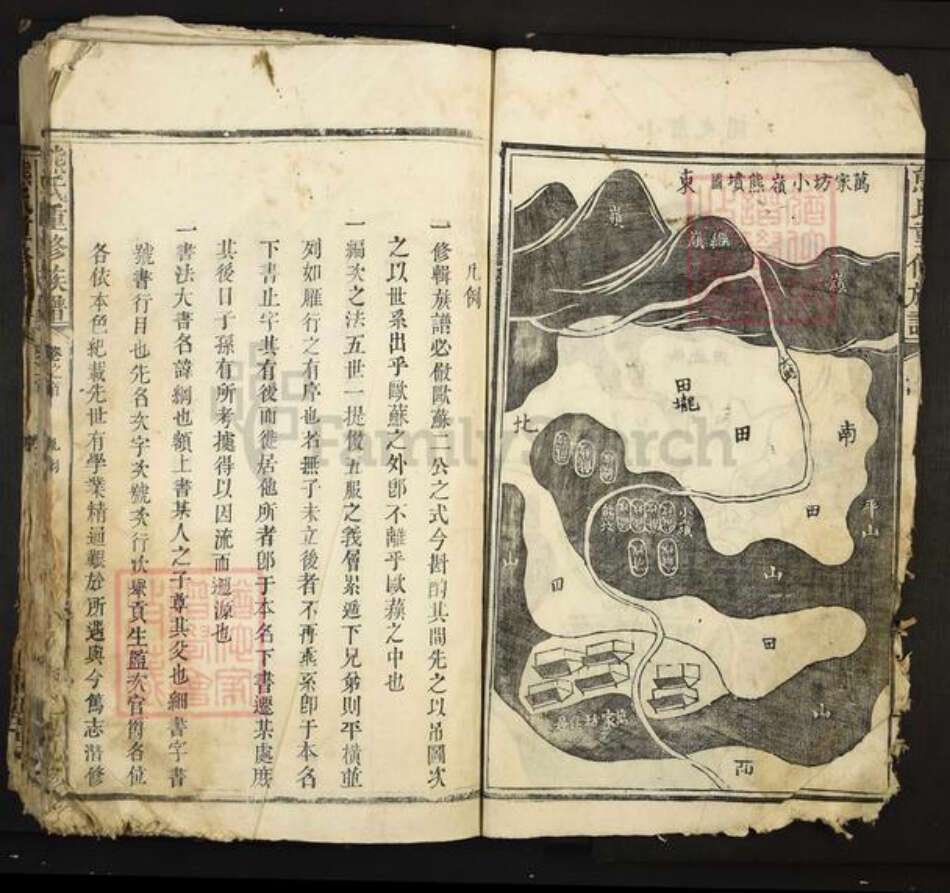 萬家坊小嶺熊墳圖
東
嶺
嶺
南
北
田壠
田
田
小嶺
平山
山
山
田
田
山
西
熊氏重修族譜
凡例
一修輯族譜必倣歐蘇二公之式今斟酌其間先之以吊圖次
之以世系出乎歐蘇之外卽不離乎歐蘇之中也
一編次之法五世一提倣五服之義層累遞下兄弟則平橫並
列如雁行之有序也若無子未立後者不再乘系卽于本名
下書止字其有後而徙居他所者卽于本名下書遷某處庶
其後日子孫有所考據得以因流而遡源也
一書法大書名諱綱也額上書某人之子尊其父也細書字書
號書行目也先名次字次號次行次舉貢生監次官衔各位
各依本色紀載先世有學業精通艱於所遇與今篤志潛修
熊氏重修族譜
卷之首
凡例
FamilySearch